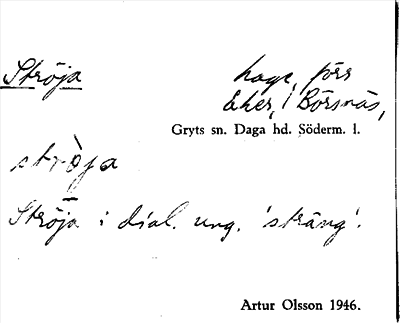 Ströja
hage, förr
åker, i Börsnäs,
Gryts sn. Daga hd. Söderm. l.
ströja
Ströja i dial. ung. 'sträng'.
Artur Olsson 1946.